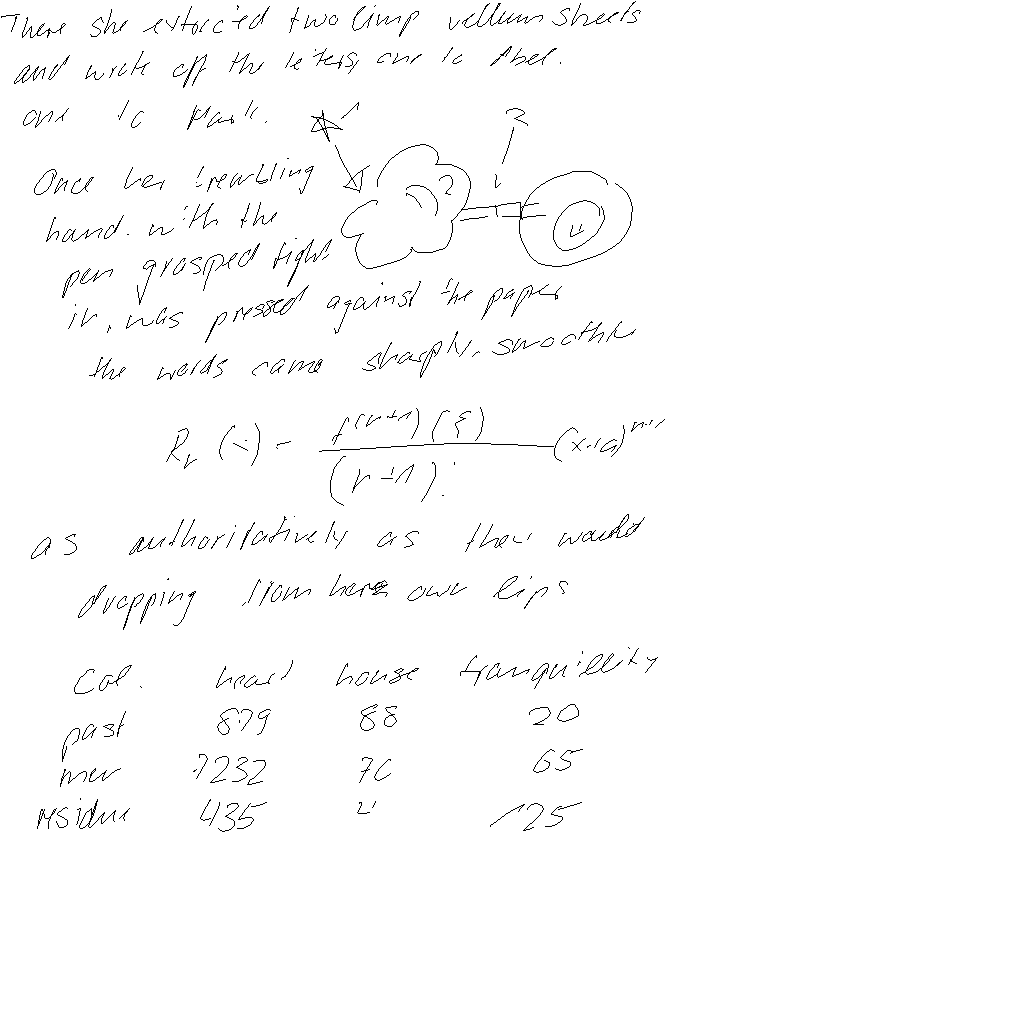 There she extorc'ed two limp vellum sheets
and wrote off the leters, one to Abel.
one to Mark.
Once her trembling
hand. with the
pen grasped tight
in, was pressed against the paper
the words came sharply, smoothly
R_n (x) = f^(n+1) (ξ) / (n+1)! (x-a)^n+1
as authoritatively as they would
dropping from here own lips
Col. heart house tranquillity
past 879 88 20
men 7232 70 65
residue 435 4 125